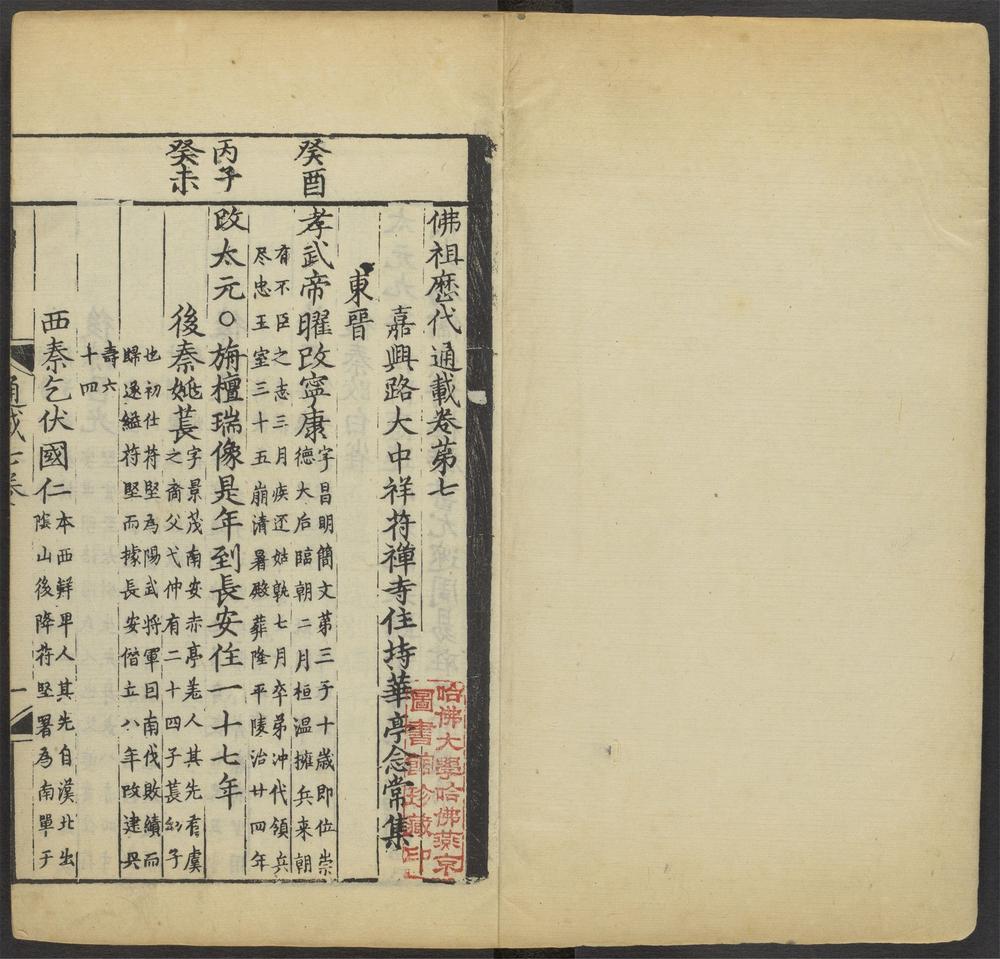 佛祖歷代通載卷第七
嘉興路大中祥符禪寺住持華亭念常集
東晉
癸酉
孝武帝曜改寧康字昌明簡文第三子十歲即位崇
德大后臨朝二月桓温擁兵来朝
有不臣之志三月疾还姑孰七月卒弟冲代領兵
尽忠王室三十五崩清暑殿葬隆平陵治廿四年
丙子
改太元○旃檀瑞像是年到長安住一十七年
癸未
後秦姚萇字景茂南安赤亭羌人其先有虞
之裔父弋仲有二十四子萇幼子
也初仕苻堅為陽武将軍曰南伐敗績而
歸遂縊苻堅而據長安僭立八年改建㠯
壽六
十四
西秦乞伏國仁本西鮮卑人其先自漠北出
隂山後降苻堅署為南單于
通載七卷
一
哈佛大學哈佛燕京
圖書館珍藏印